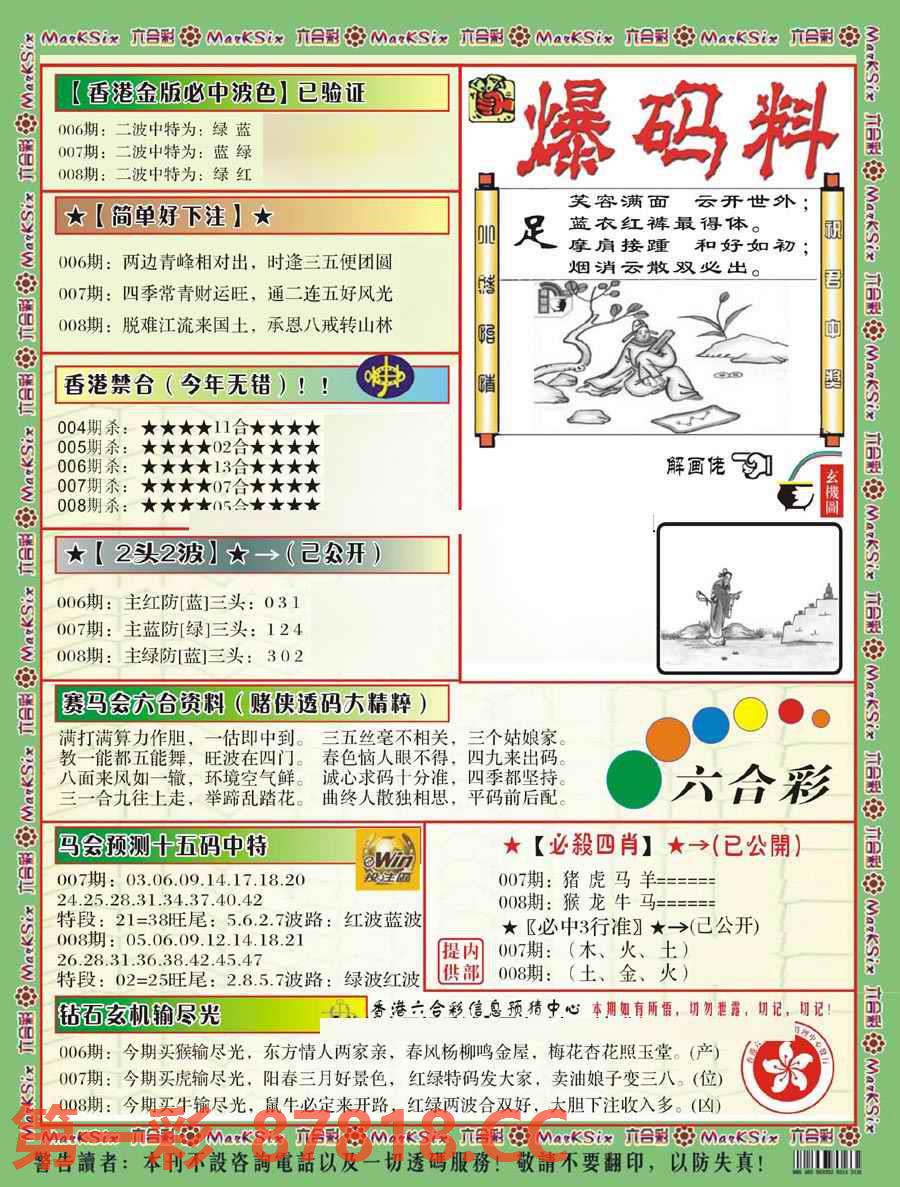 MarKSix 六合彩 MarKSix 六合彩 MarKSix 六合彩 MarKSix 六合彩 MarKSix 六合彩
【香港金版必中波色】已验证
006期：二波中特为：绿 蓝
007期：二波中特为：蓝 绿
008期：二波中特为：绿 红
★【简单好下注】★
006期：两边青峰相对出，时逢三五便团圆
007期：四季常青财运旺，通二连五好风光
008期：脱难江流来国土，承恩八戒转山林
香港禁合（今年无错）！！
004期杀：★★★★11合★★★★
005期杀：★★★★02合★★★★
006期杀：★★★★13合★★★★
007期杀：★★★★07合★★★★
008期杀：★★★★05合★★★★
★【 2头2波】★→（已公开）
006期：主红防[蓝]三头：0 3 1
007期：主蓝防[绿]三头：1 2 4
008期：主绿防[蓝]三头：3 0 2
爆码料
足
笑容满面 云开世外；
蓝衣红裤最得体。
摩肩接踵 和好如初；
烟消云散双必出。
祝君中奖
解画佬
玄機圖
赛马会六合资料（赌侠透码大精粹）
满打满算力作胆，一估即中到。 三五丝毫不相关，三个姑娘家。
教一能都五能舞，旺波在四门。 春色恼人眼不得，四九来出码。
八面来风如一辙，环境空气鲜。 诚心求码十分准，四季都坚持。
三一合九往上走，举蹄乱踏花。 曲终人散独相思，平码前后配。
六合彩
马会预测十五码中特
eWin
投注區
007期：03.06.09.14.17.18.20
24.25.28.31.34.37.40.42
特段：21=38旺尾：5.6.2.7波路：红波蓝波
008期：05.06.09.12.14.18.21
26.28.31.36.38.42.45.47
特段：02=25旺尾：2.8.5.7波路：绿波红波
★【必殺四肖】★→(已公開)
007期：猪 虎 马 羊======
008期：猴 龙 牛 马======
★〖必中3行准〗★→(已公开)
007期：（木、火、土）
008期：（土、金、火）
内部提供
钻石玄机输尽光
香港六合彩信息预猜中心 本期如有所悟，切勿泄露，切记，切记！
006期：今期买猴输尽光，东方情人两家亲，春风杨柳鸣金屋，梅花杏花照玉堂。(产)
007期：今期买虎输尽光，阳春三月好景色，红绿特码发大家，卖油娘子变三八。(位)
008期：今期买牛输尽光，鼠牛必定来开路，红绿两波合双好，大胆下注收入多。(凶)
第一彩 87818.CC
MarKSix 六合彩 MarKSix 六合彩 MarKSix 六合彩 MarKSix 六合彩 MarKSix 六合彩
警告讀者：本刊不設咨詢電話以及一切透碼服務！敬請不要翻印，以防失真！